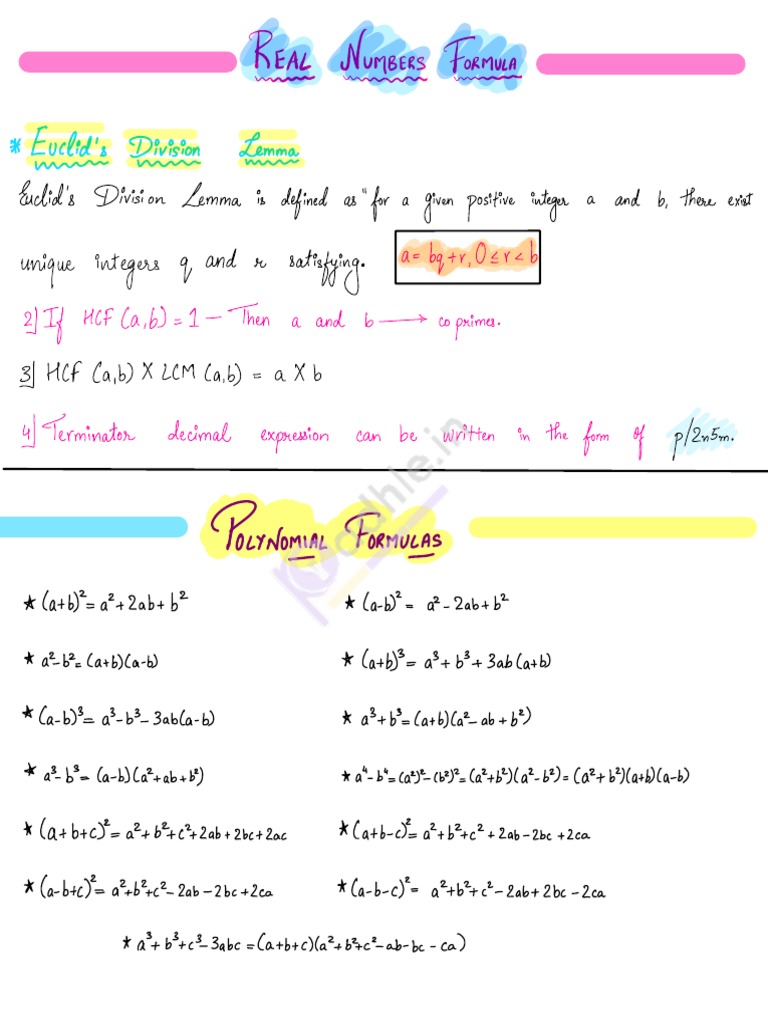 REAL NUMBERS FORMULA
* Euclid's Division Lemma
Euclid's Division Lemma is defined as "for a given positive integer a and b, there exist
unique integers q and r satisfying. a = bq + r, 0 ≤ r < b
2] If HCF (a,b) = 1 — Then a and b ⟶ co primes.
3] HCF (a,b) X LCM (a,b) = a X b
4] Terminator decimal expression can be written in the form of p/2n5m.
POLYNOMIAL FORMULAS
★ (a+b)² = a² + 2ab + b² ★ (a-b)² = a² - 2ab + b²
★ a² - b² = (a+b)(a-b) ★ (a+b)³ = a³ + b³ + 3ab(a+b)
★ (a-b)³ = a³ - b³ - 3ab(a-b) ★ a³ + b³ = (a+b)(a² - ab + b²)
★ a³ - b³ = (a-b)(a² + ab + b²) ★ a⁴ - b⁴ = (a²)² - (b²)² = (a² + b²)(a² - b²) = (a² + b²)(a+b)(a-b)
★ (a+b+c)² = a² + b² + c² + 2ab + 2bc + 2ac ★ (a+b-c)² = a² + b² + c² + 2ab - 2bc + 2ca
★ (a-b+c)² = a² + b² + c² - 2ab - 2bc + 2ca ★ (a-b-c)² = a² + b² + c² - 2ab + 2bc - 2ca
★ a³ + b³ + c³ - 3abc = (a+b+c)(a² + b² + c² - ab - bc - ca)